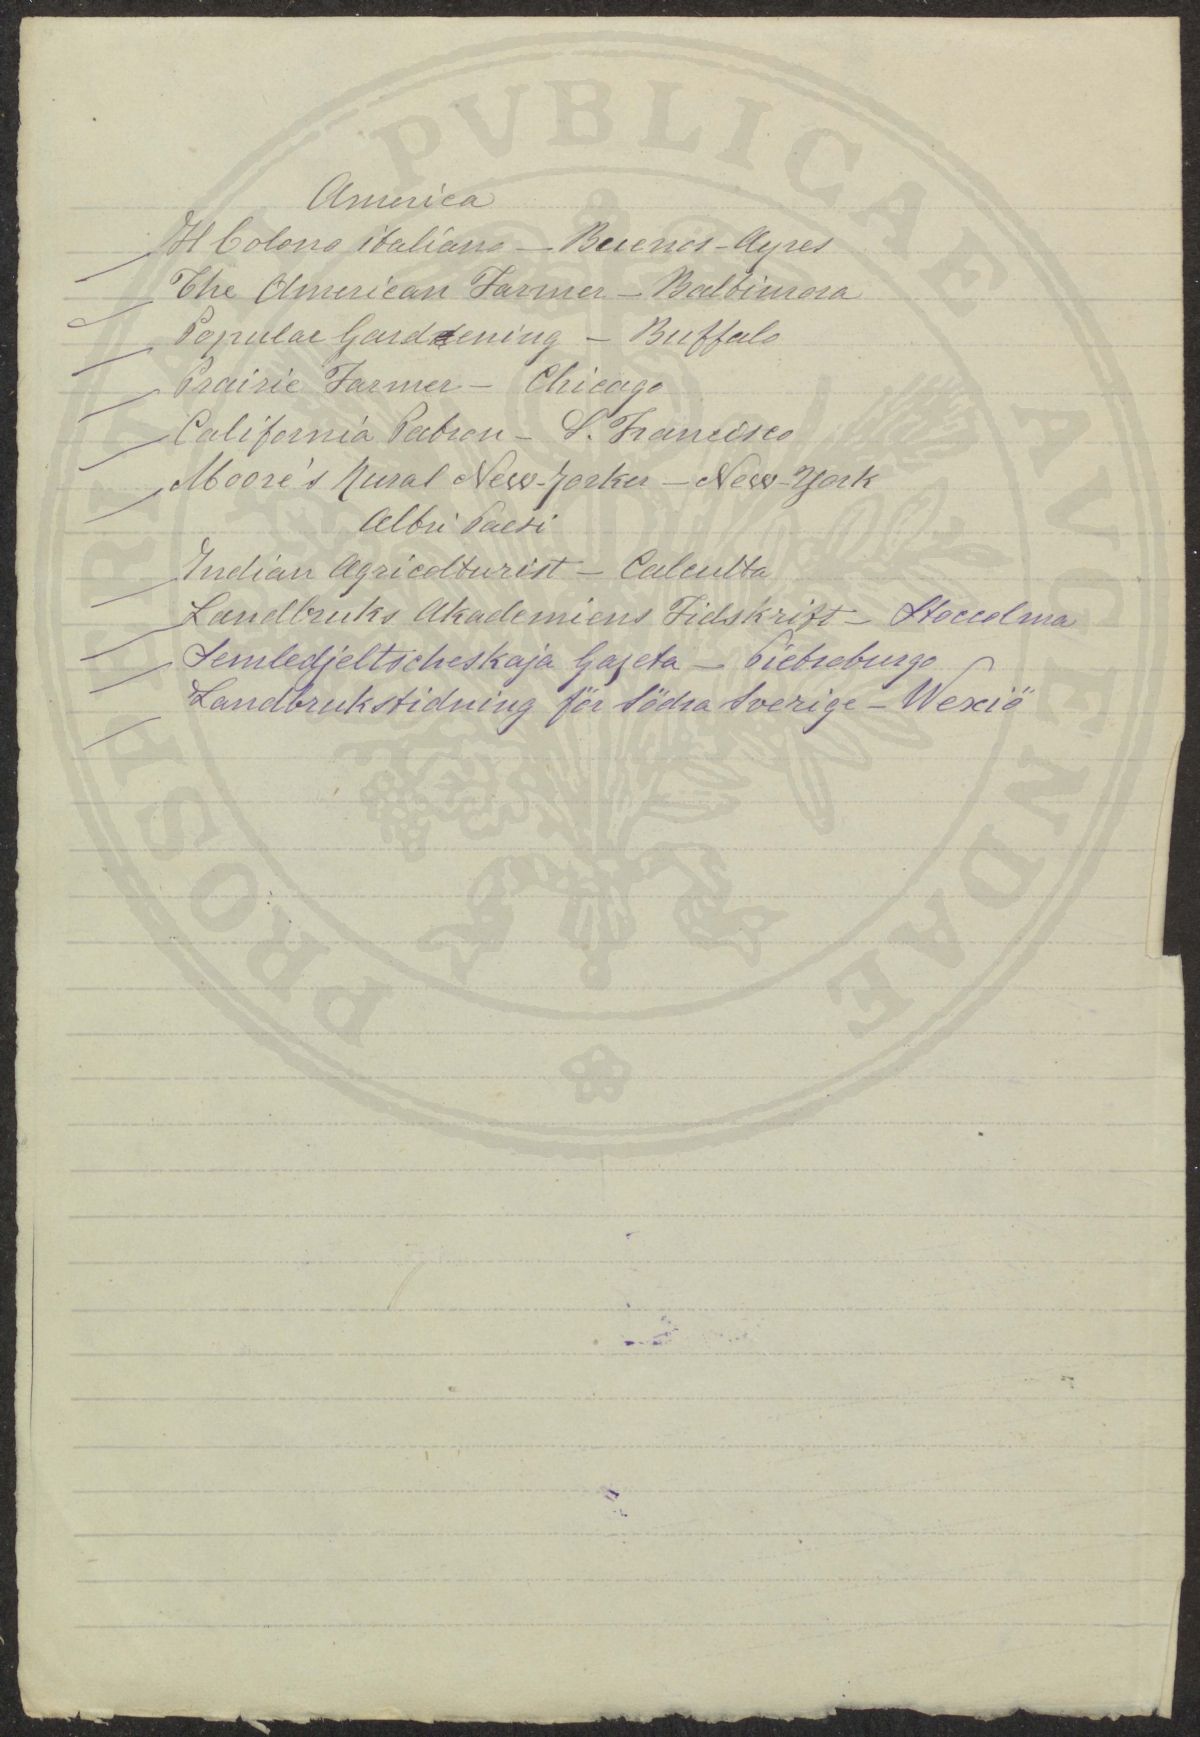 America
Il Colono italiano — Buenos-Ayres
The American Farmer — Baltimora
Popular Gardening — Buffalo
Prairie Farmer — Chicago
California Patron — S. Francisco
Moore's Rural New-Yorker — New-York
Altri Paesi
Indian Agricolturist — Calcutta
Landbruks Akademiens Tidskrift — Stoccolma
Semledjeltscheskaja Gazeta — Pietroburgo
Landbrukstidning för Södra Sverige — Wexiö
PROSPERITATI PVBLICAE AVGENDAE